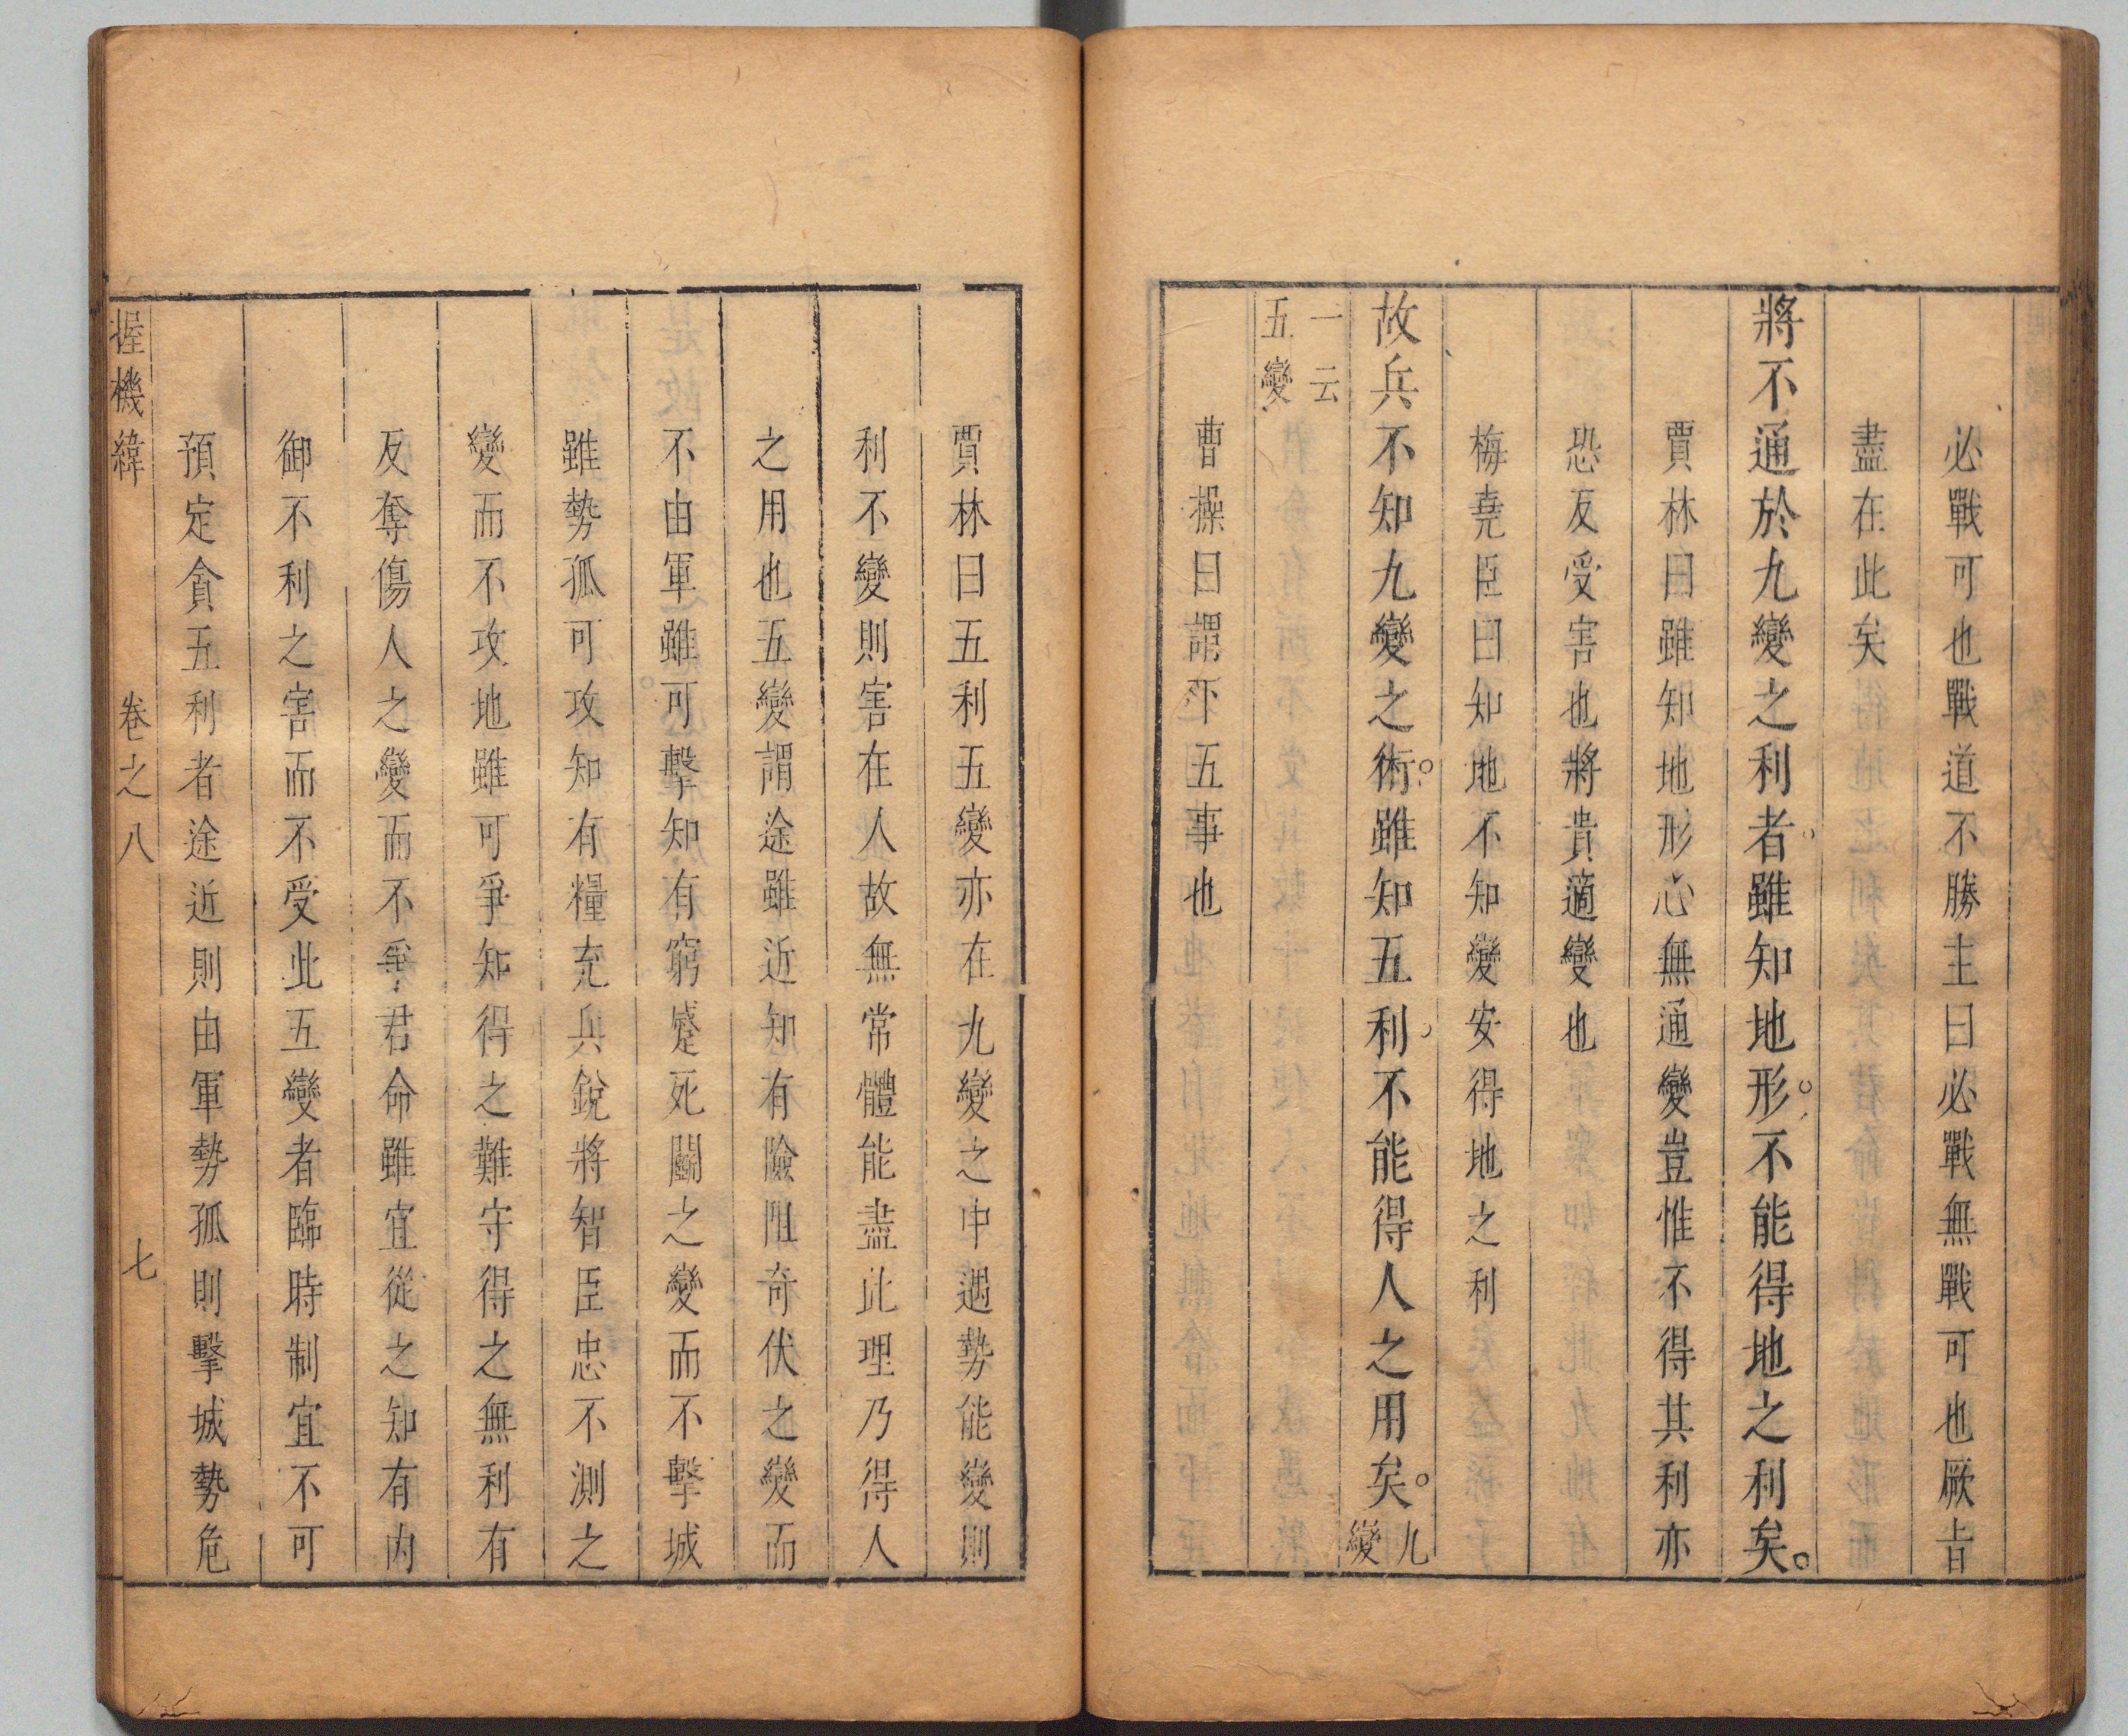 必戰可也戰道不勝主曰必戰無戰可也厥旨
盡在此矣
將不通於九變之利者雖知地形不能得地之利矣
賈林曰雖知地形心無通變豈惟不得其利亦
恐反受害也將貴適變也
梅堯臣曰知地不知變安得地之利
故兵不知九變之術雖知五利不能得人之用矣九變
一云
五變
曹操曰謂下五事也
賈林曰五利五變亦在九變之中遇勢能變則
利不變則害在人故無常體能盡此理乃得人
之用也五變謂途雖近知有險阻奇伏之變而
不由軍雖可擊知有窮蹙死鬬之變而不擊城
雖勢孤可攻知有糧充兵銳將智臣忠不測之
變而不攻地雖可爭知得之難守得之無利有
反奪傷人之變而不爭君命雖宜從之知有內
御不利之害而不受此五變者臨時制宜不可
預定貪五利者途近則由軍勢孤則擊城勢危
握機緯 卷之八 七